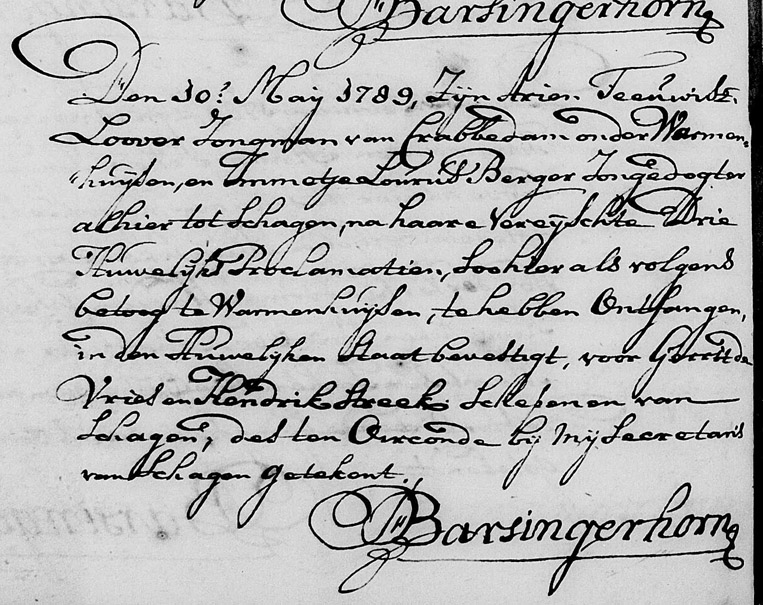 Barsingerhorn
Den 10e May 1789, Zijn Arien Teeuwisz:
Loover Jongman van Crabbedam onder Warmen=
=huijsen, en Immetje Louris Berger Jongedogter
alhier tot Schagen, na haare Vereijschte Drie
Huwelijks Proclamatien, Soo hier als volgens
betoog te Warmenhuijsen, te hebben Ontfangen,
in den Huwelijken Staat bevestigt, voor Gerrit de
Vries en Hendrik Streek Schepenen van
Schagen, des ten Oirconde bij Mij Secretaris
van Schagen getekent.
Barsingerhorn